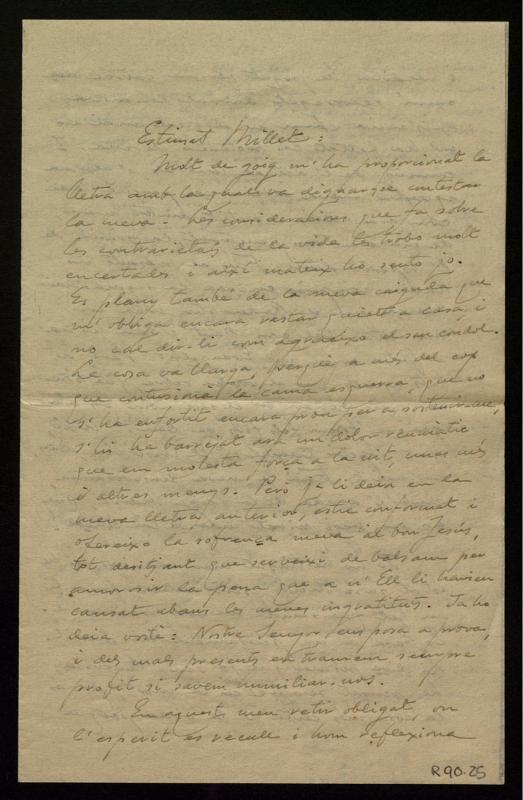 Estimat Millet:
Molt de goig m'ha proporcionat la
lletra amb la qual va dignar-se contestar
la meva. Les consideracions que fa sobre
les contrarietats de la vida les trobo molt
encertades i així mateix ho sento jo.
Es plany també de la meva caiguda que
m'obliga encara restar quiet a casa, i
no cal dir-li com agraeixo el seu condol.
La cosa va llarga, perquè a més del cop
que contusionà la cama esquerra, que no
s'ha enfortit encara prou per a sostenir-me,
s'hi ha barrejat ara un dolor reumàtic
que em molesta força a la nit, unes més
i altres menys. Però ja li deia en la
meva lletra anterior, estic conformat i
ofereixo la sofrença meva al bon Jesús,
tot desitjant que serveixi de bàlsam per
amorosir la pena que a n'Ell li haurien
causat abans les meves ingratituts. Ja ho
deia vostè: Nostre Senyor ens posa a prova,
i dels mals presents en traurem sempre
profit si sabem humiliar-nos.
En aquest meu retir obligat, on
l'esperit es recull i hom reflexiona
R90.25